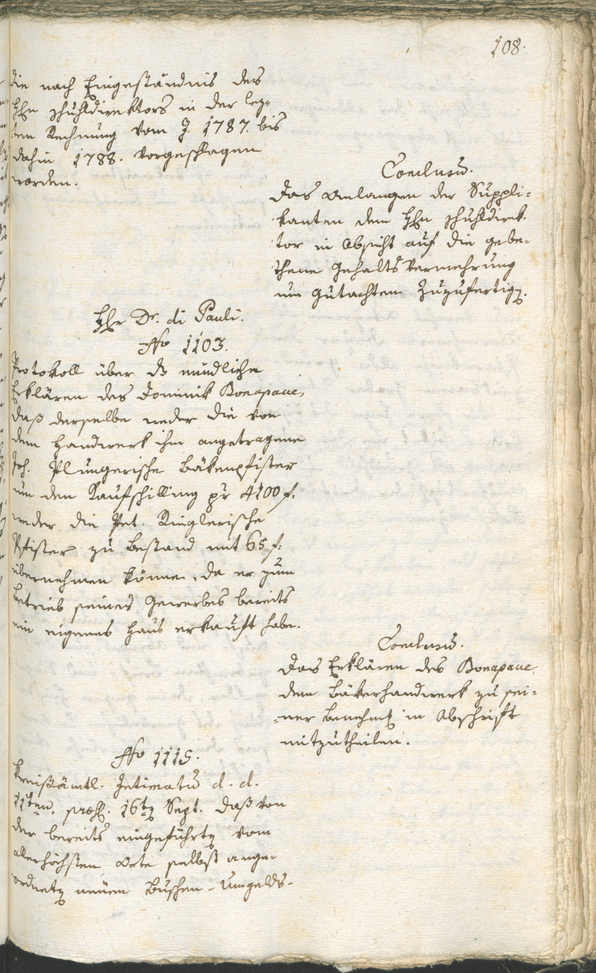 108.
die nach Eingeständnis des
Hn Schuldirektors in der lez-
ten Rechnung vom J. 1787. bis
dahin 1788. vorgeschlagen
worden.
Conclusum.
Das Anlangen der Suppli-
kanten dem Hn Schuldirek-
tor in Absicht auf die gebe-
thene Gehalts Vermehrung
um Gutachten zuzufertigen.
Hr Dr. di Pauli.
No 1103.
Protokoll über das mündliche
Erklären des Dominik Bonapace,
daß derselbe weder die von
dem Handwerk ihm angetragene
Joh. Plungerische Bäkenpfister
um den Kaufschilling pr 4100 f.
weder die Pet. Ringlerische
Pfister zu Bestand mit 65 f.
übernehmen könne, da er zum
Betrieb seines Gewerbes bereits
ein eigenes Haus erkauft habe.
Conclusum.
Das Erklären des Bonapace
dem Bäkerhandwerk zu sei-
ner Benehmung in Abschrift
mitzutheilen.
No 1115.
Kreißämtl. Intimatum d. d.
11ten, praes. 16ten Sept. daß von
der bereits eingeführten vom
allerhöchsten Orte selbst ange-
ordneten neuen Buschen-Umgelds-